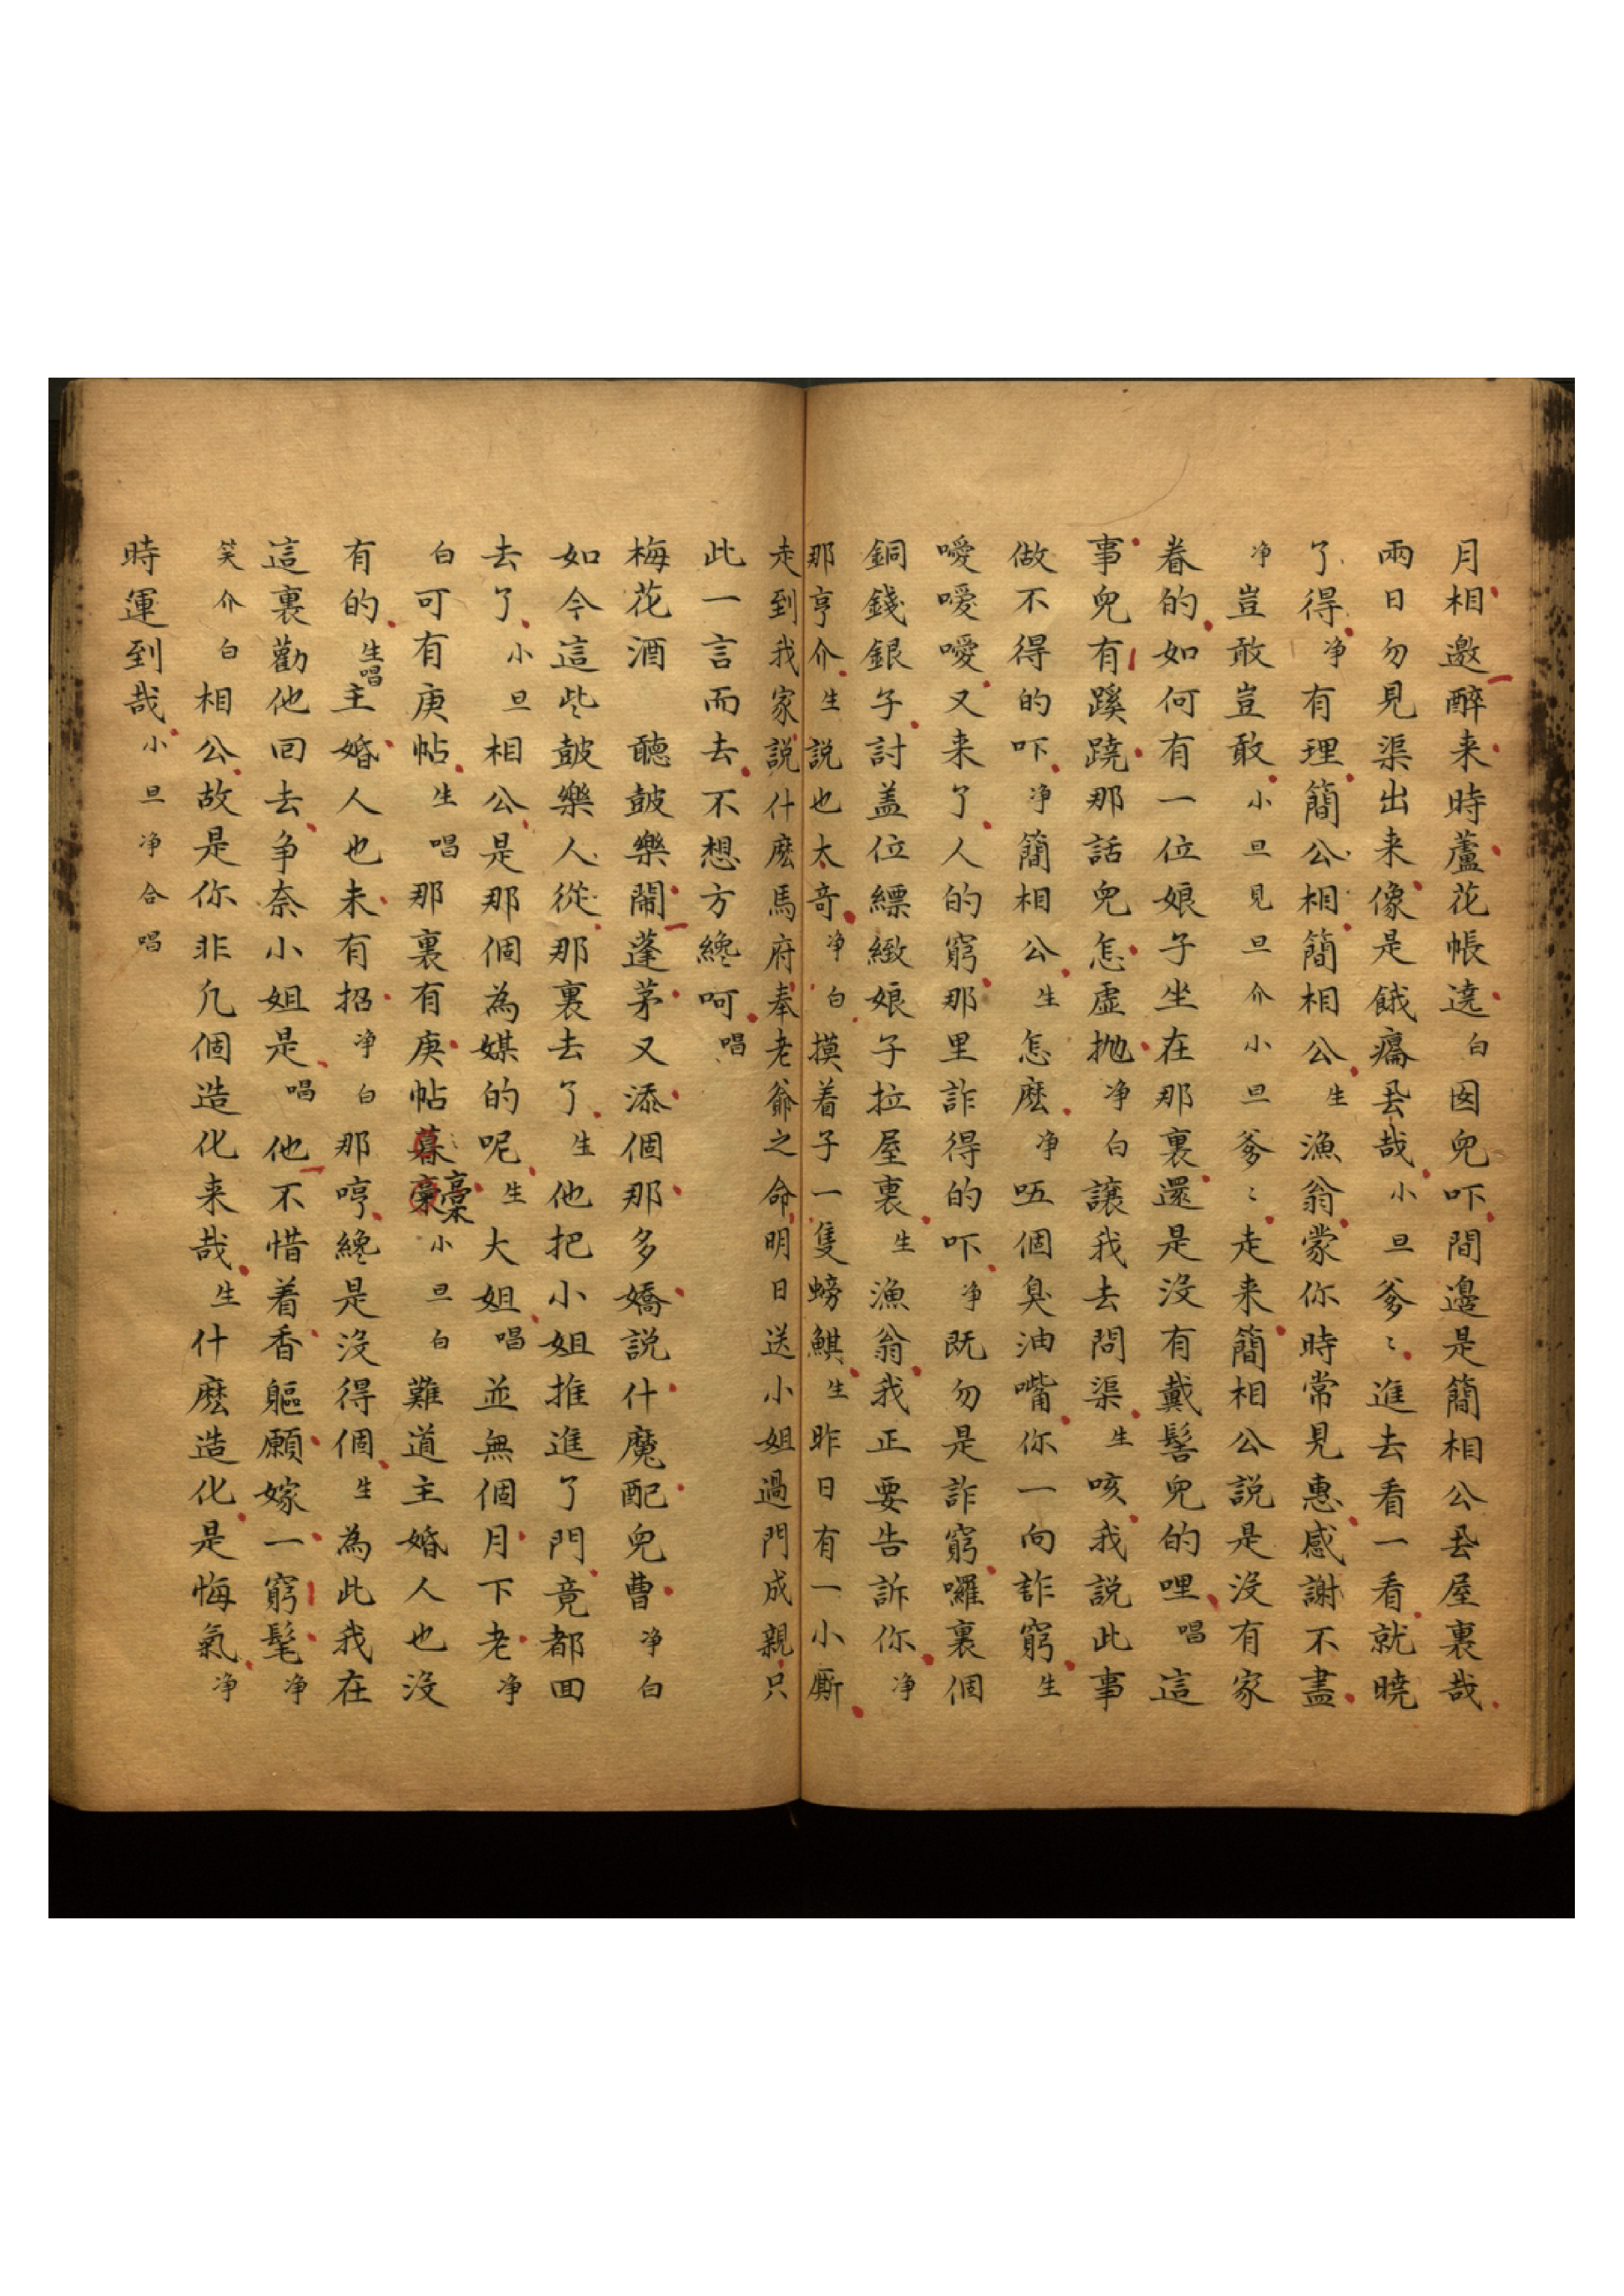 月相邀醉来時蘆花帳遶白囡兒吓間邊是簡相公厾屋裏哉
兩日勿見渠出来像是餓癟厾哉小旦爹〻進去看一看就曉
了得净有理簡公相簡相公生漁翁蒙你時常見惠感謝不盡
净豈敢豈敢小旦見旦介小旦爹〻走来簡相公說是沒有家
眷的如何有一位娘子坐在那裏還是沒有戴髻兒的哩唱這
事兒有蹊蹺那話兒怎虛抛净白讓我去問渠生咳我説此事
做不得的吓净簡相公生怎麽净㕶個臭油嘴你一向詐窮生
噯噯噯噯又来了人的窮那里詐得的吓净既勿是詐窮囉裏個
銅錢銀子討盖位縹緻娘子拉屋裏生漁翁我正要告訴你净
那亨介生説也太奇净白摸着子一隻螃鯕生昨日有一小厮
走到我家説什麽馬府奉老爺之命明日送小姐過門成親只
此一言而去不想方纔呵唱
梅花酒 聽皷樂鬧蓬茅又添個那多嬌説什魔配兒曹净白
如今這些皷樂人從那裏去了生他把小姐推進了門竟都回
去了小旦相公是那個為媒的呢生大姐唱並無個月下老净
白可有庚帖生唱那裏有庚帖暮稾藁小旦白難道主婚人也沒
有的生唱主婚人也未有招净白那哼纔是沒得個生為此我在
這裏勸他回去争奈小姐是唱他不惜着香軀願嫁一窮髦净
笑介白相公故是你非凢個造化来哉生什麽造化是悔氣净
時運到哉小旦净合唱